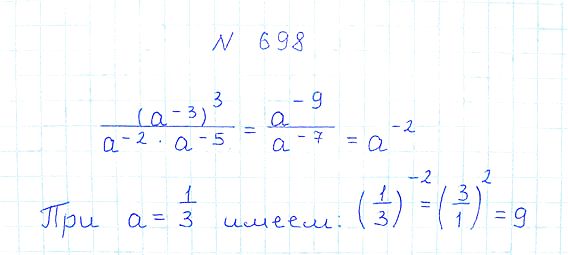 N 698
(a⁻³)³ / (a⁻² · a⁻⁵) = a⁻⁹ / a⁻⁷ = a⁻²
При a = 1/3 имеем: (1/3)⁻² = (3/1)² = 9